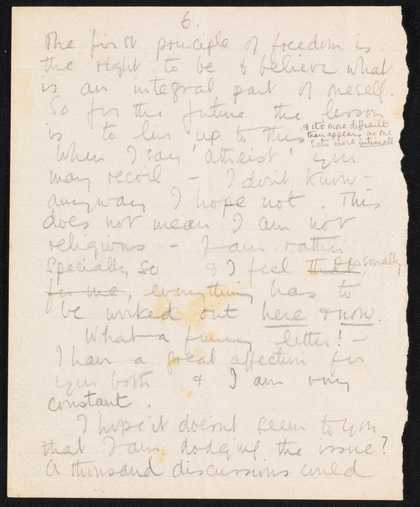 6.
The first principle of freedom is
the right to be & believe what
is an integral part of oneself.
So for the future the lesson
is to live up to this & it's more difficult
than appears as one
gets more
When I say 'atheist' you
may recoil – I don't know –
anyway I hope not. This
does not mean I am not
religious – I am rather
specially so & I feel personally
for me, everything has to
be worked out here & now.
What a funny letter! –
I have a great affection for
you both & I am very
constant.
I hope it doesn't seem to you
that I am dodging the issue?
A thousand discussions could